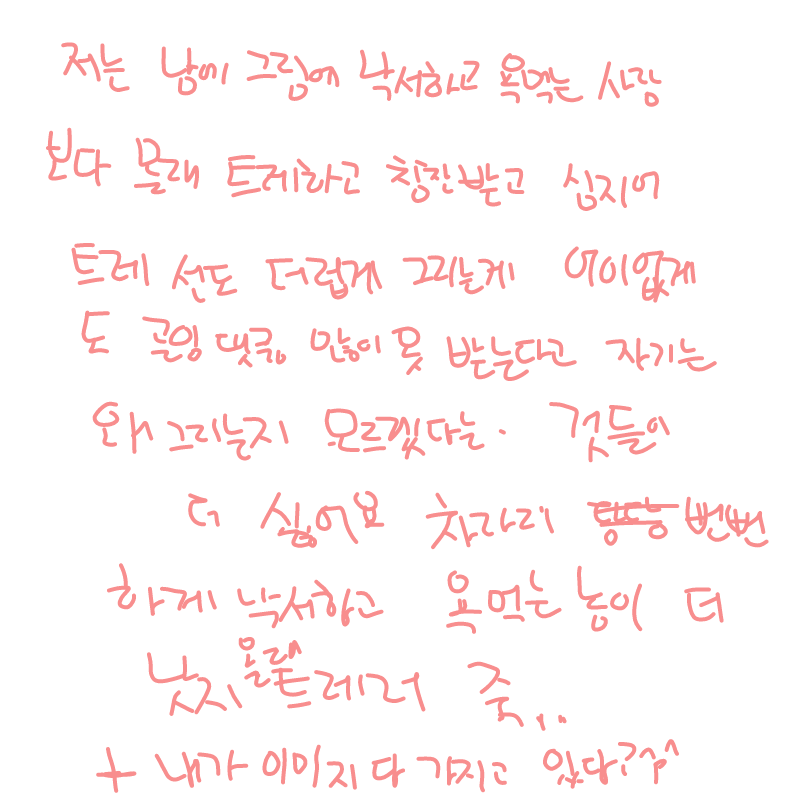 저는 남에 그림에 낙서하고 욕먹는 사람
보다 몰래 트레하고 칭찬받고 심지어
트레 선도 더럽게 그리는게 어이없게
도 골잉 댓큼 많이 못 받는다고 자기는
왜 그리는지 모르겠다는. 것들이
더 싫어요 차라리 번번
하게 낙서하고 욕먹는 놈이 더
낫지 몰래트레러 죽..
+ 내가 이미지 다 가지고 있다?^^